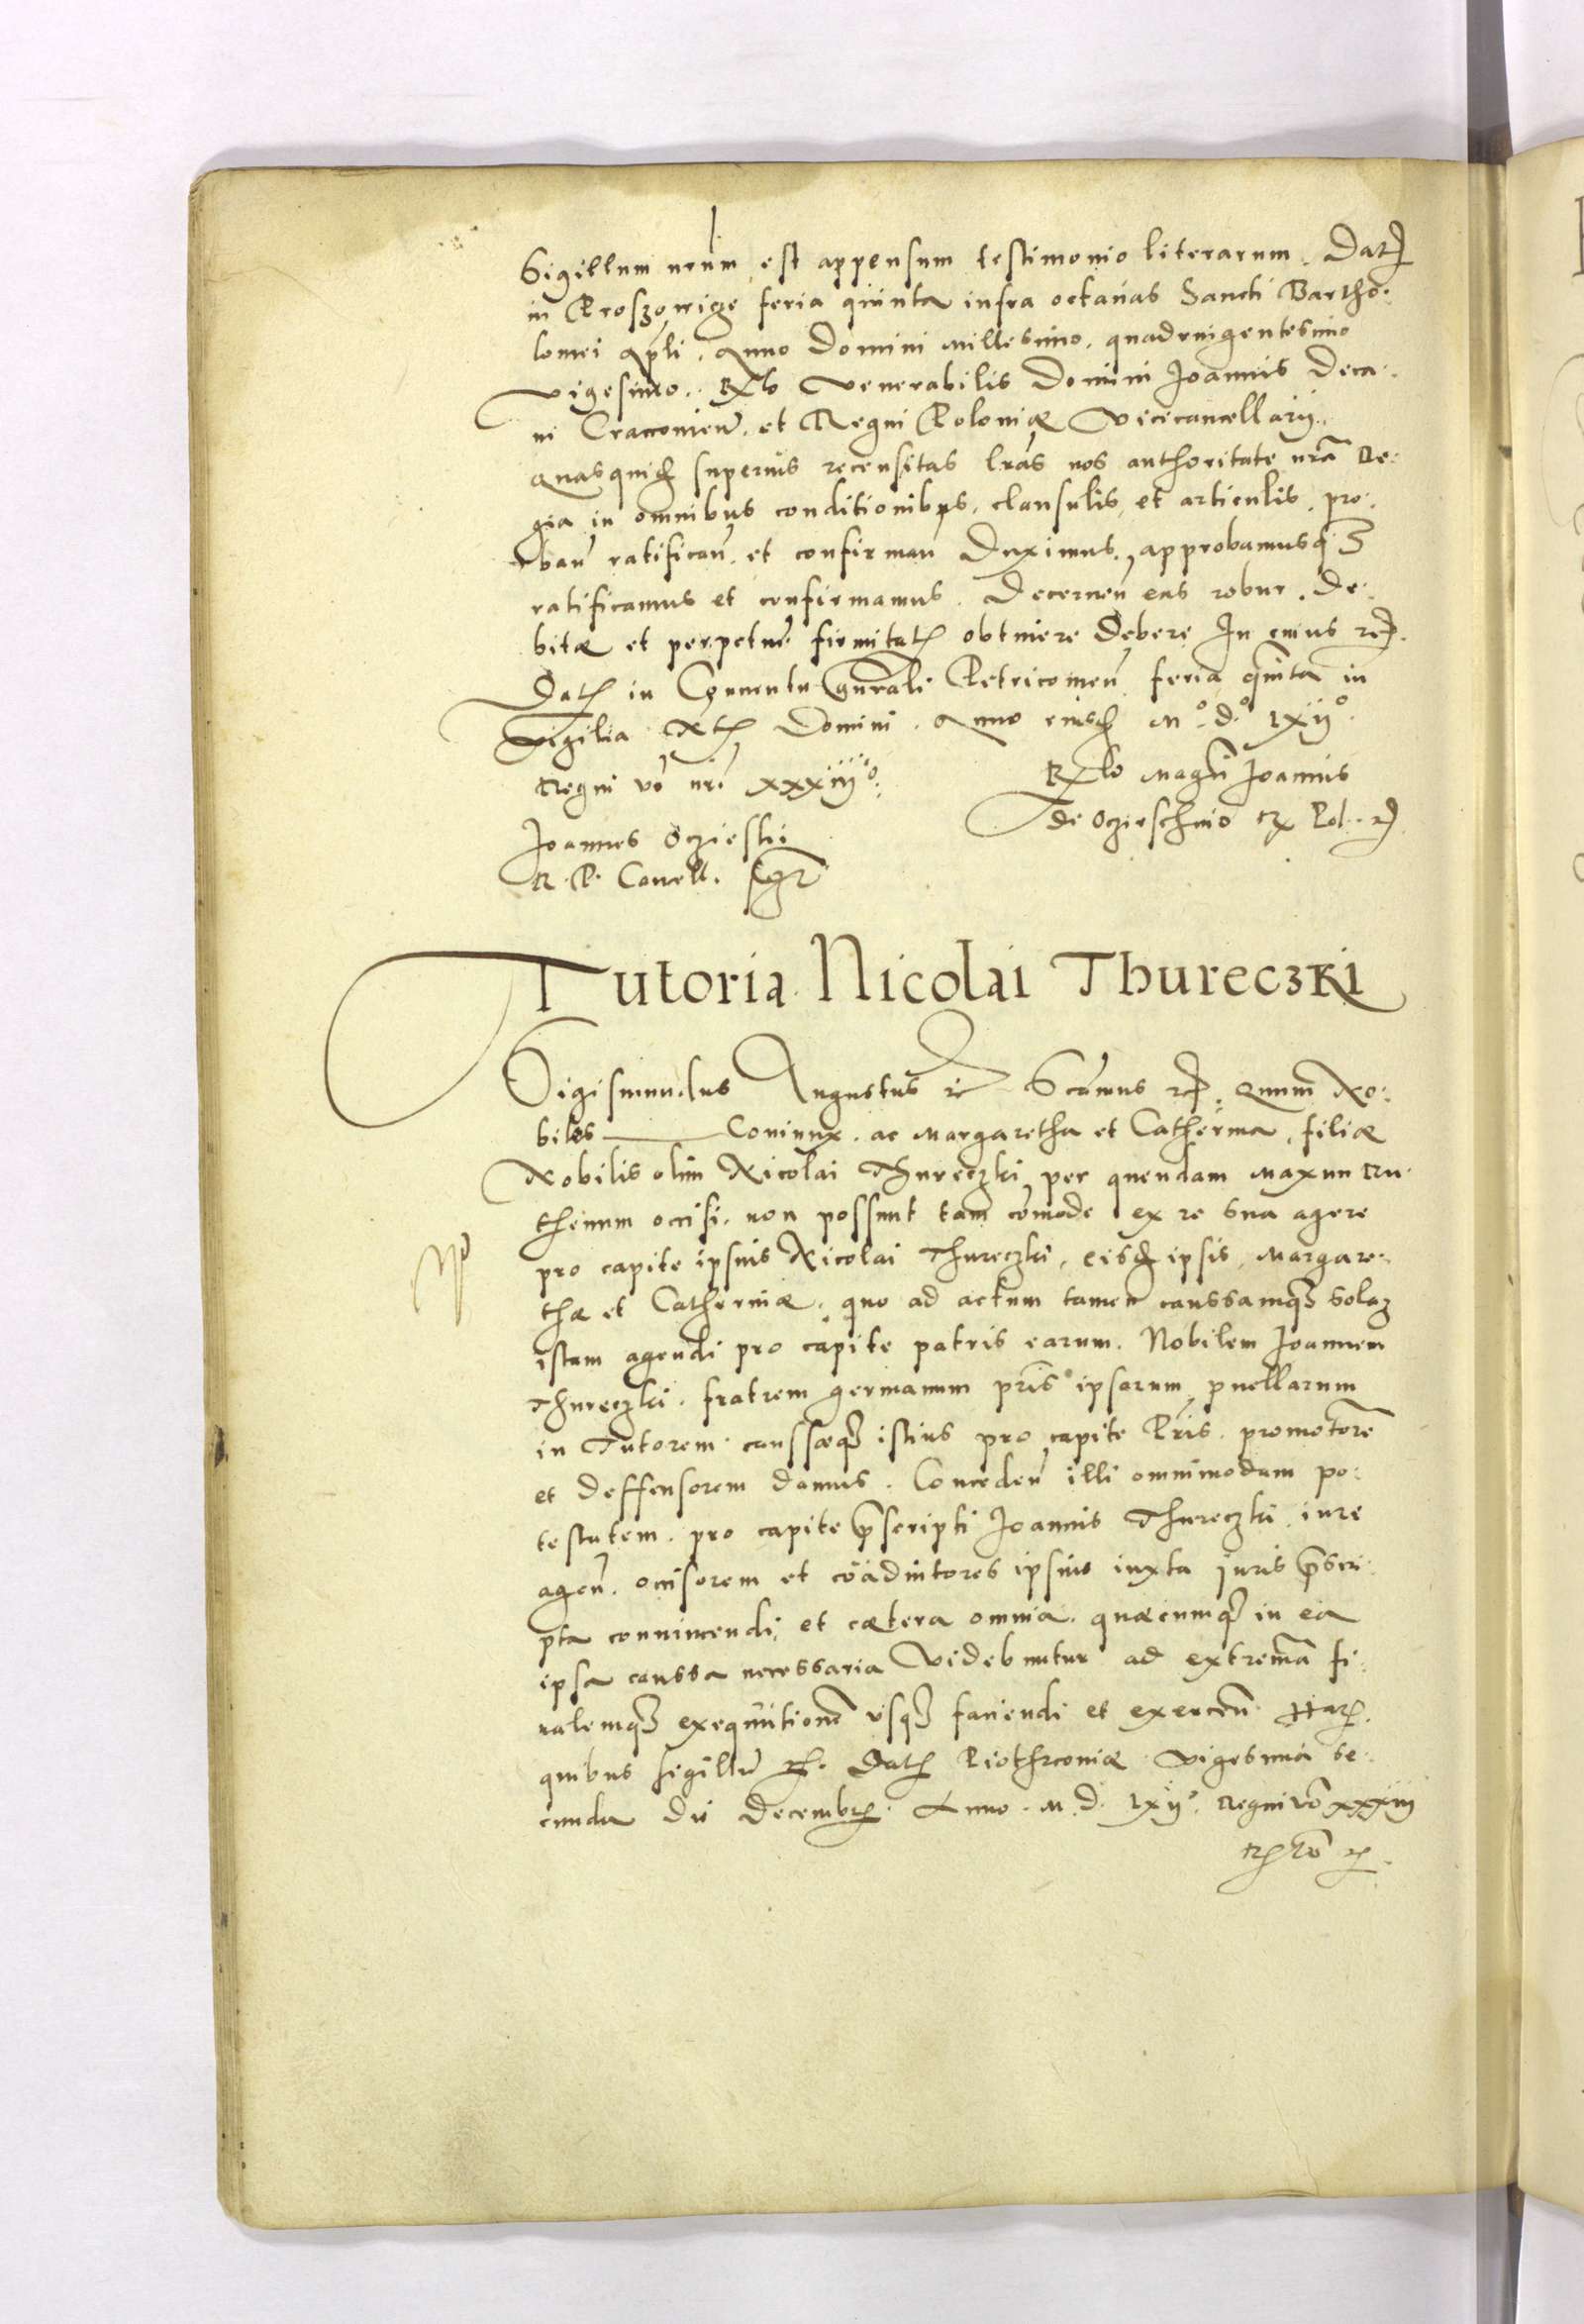 Sigillum nrum est appensum testimonio literarum. Dat
in Proszowicze feria quinta infra octauas Sancti Bartho-
lomei Apli. Anno Domini millesimo. quadringentesimo
vigesimo. Rlo Venerabilis Domini Joannis Deca-
ni Cracouien. et Regni Poloniæ Vicecancellarij.
Quasquid superius recensitas lras nos authoritate nra Re-
gia in omnibus conditionibus, clausulis, et articulis, pro-
ban ratifican. et confirman duximus, approbamusq
ratificamus et confirmamus. Decernen eas robur. de-
bitæ et perpetuæ firmitat obtinere debere In cuius rei
Dat in Conuentu Gnrali Petricouien feria quinta in
Vigilia Nat Domini. Anno eiusd M.º d.º lxijº
Regni vo nri xxxiijº.
Rlo Magci Joannis
de Oczieschino R Pol.
Joannes Oczieski
R. P. Cancell. sgr
Tutoria Nicolai Thureczki
Sigismundus Augustus Scimus Quum No-
biles Coniunx. ac Margaretha et Catherina, filiæ
Nobilis olim Nicolai Thureczki per quendam Maxim Ru-
thenum occisi. non possunt tam comode ex re sua agere
pro capite ipsius Nicolai Thureczki, eisd ipsis Margare-
thæ et Catherinæ. quo ad actum tamen caussamq solaz
istam agendi pro capite patris earum. Nobilem Joannem
Thureczki. fratrem germanum pris ipsarum puellarum
in Tutorem caussæq istius pro capite Pris. promotore
et deffensorem damus. Conceden illi omnimodam po-
testatem. pro capite pscripti Joannis Thureczki iure
agen. occisorem et coadiutores ipsius iuxta Juris pscri-
pta conuincendi, et cætera omnia. quæcumq in ea
ipsa caussa necessaria videbuntur ad extrema fi-
nalemq exequutione vsq faciendi et exercen. Har
quibus sigillu Dat Piotrconiæ vigesima se-
cunda Di Decembr. Anno. M. d. lxijº. Regni vo xxxiij